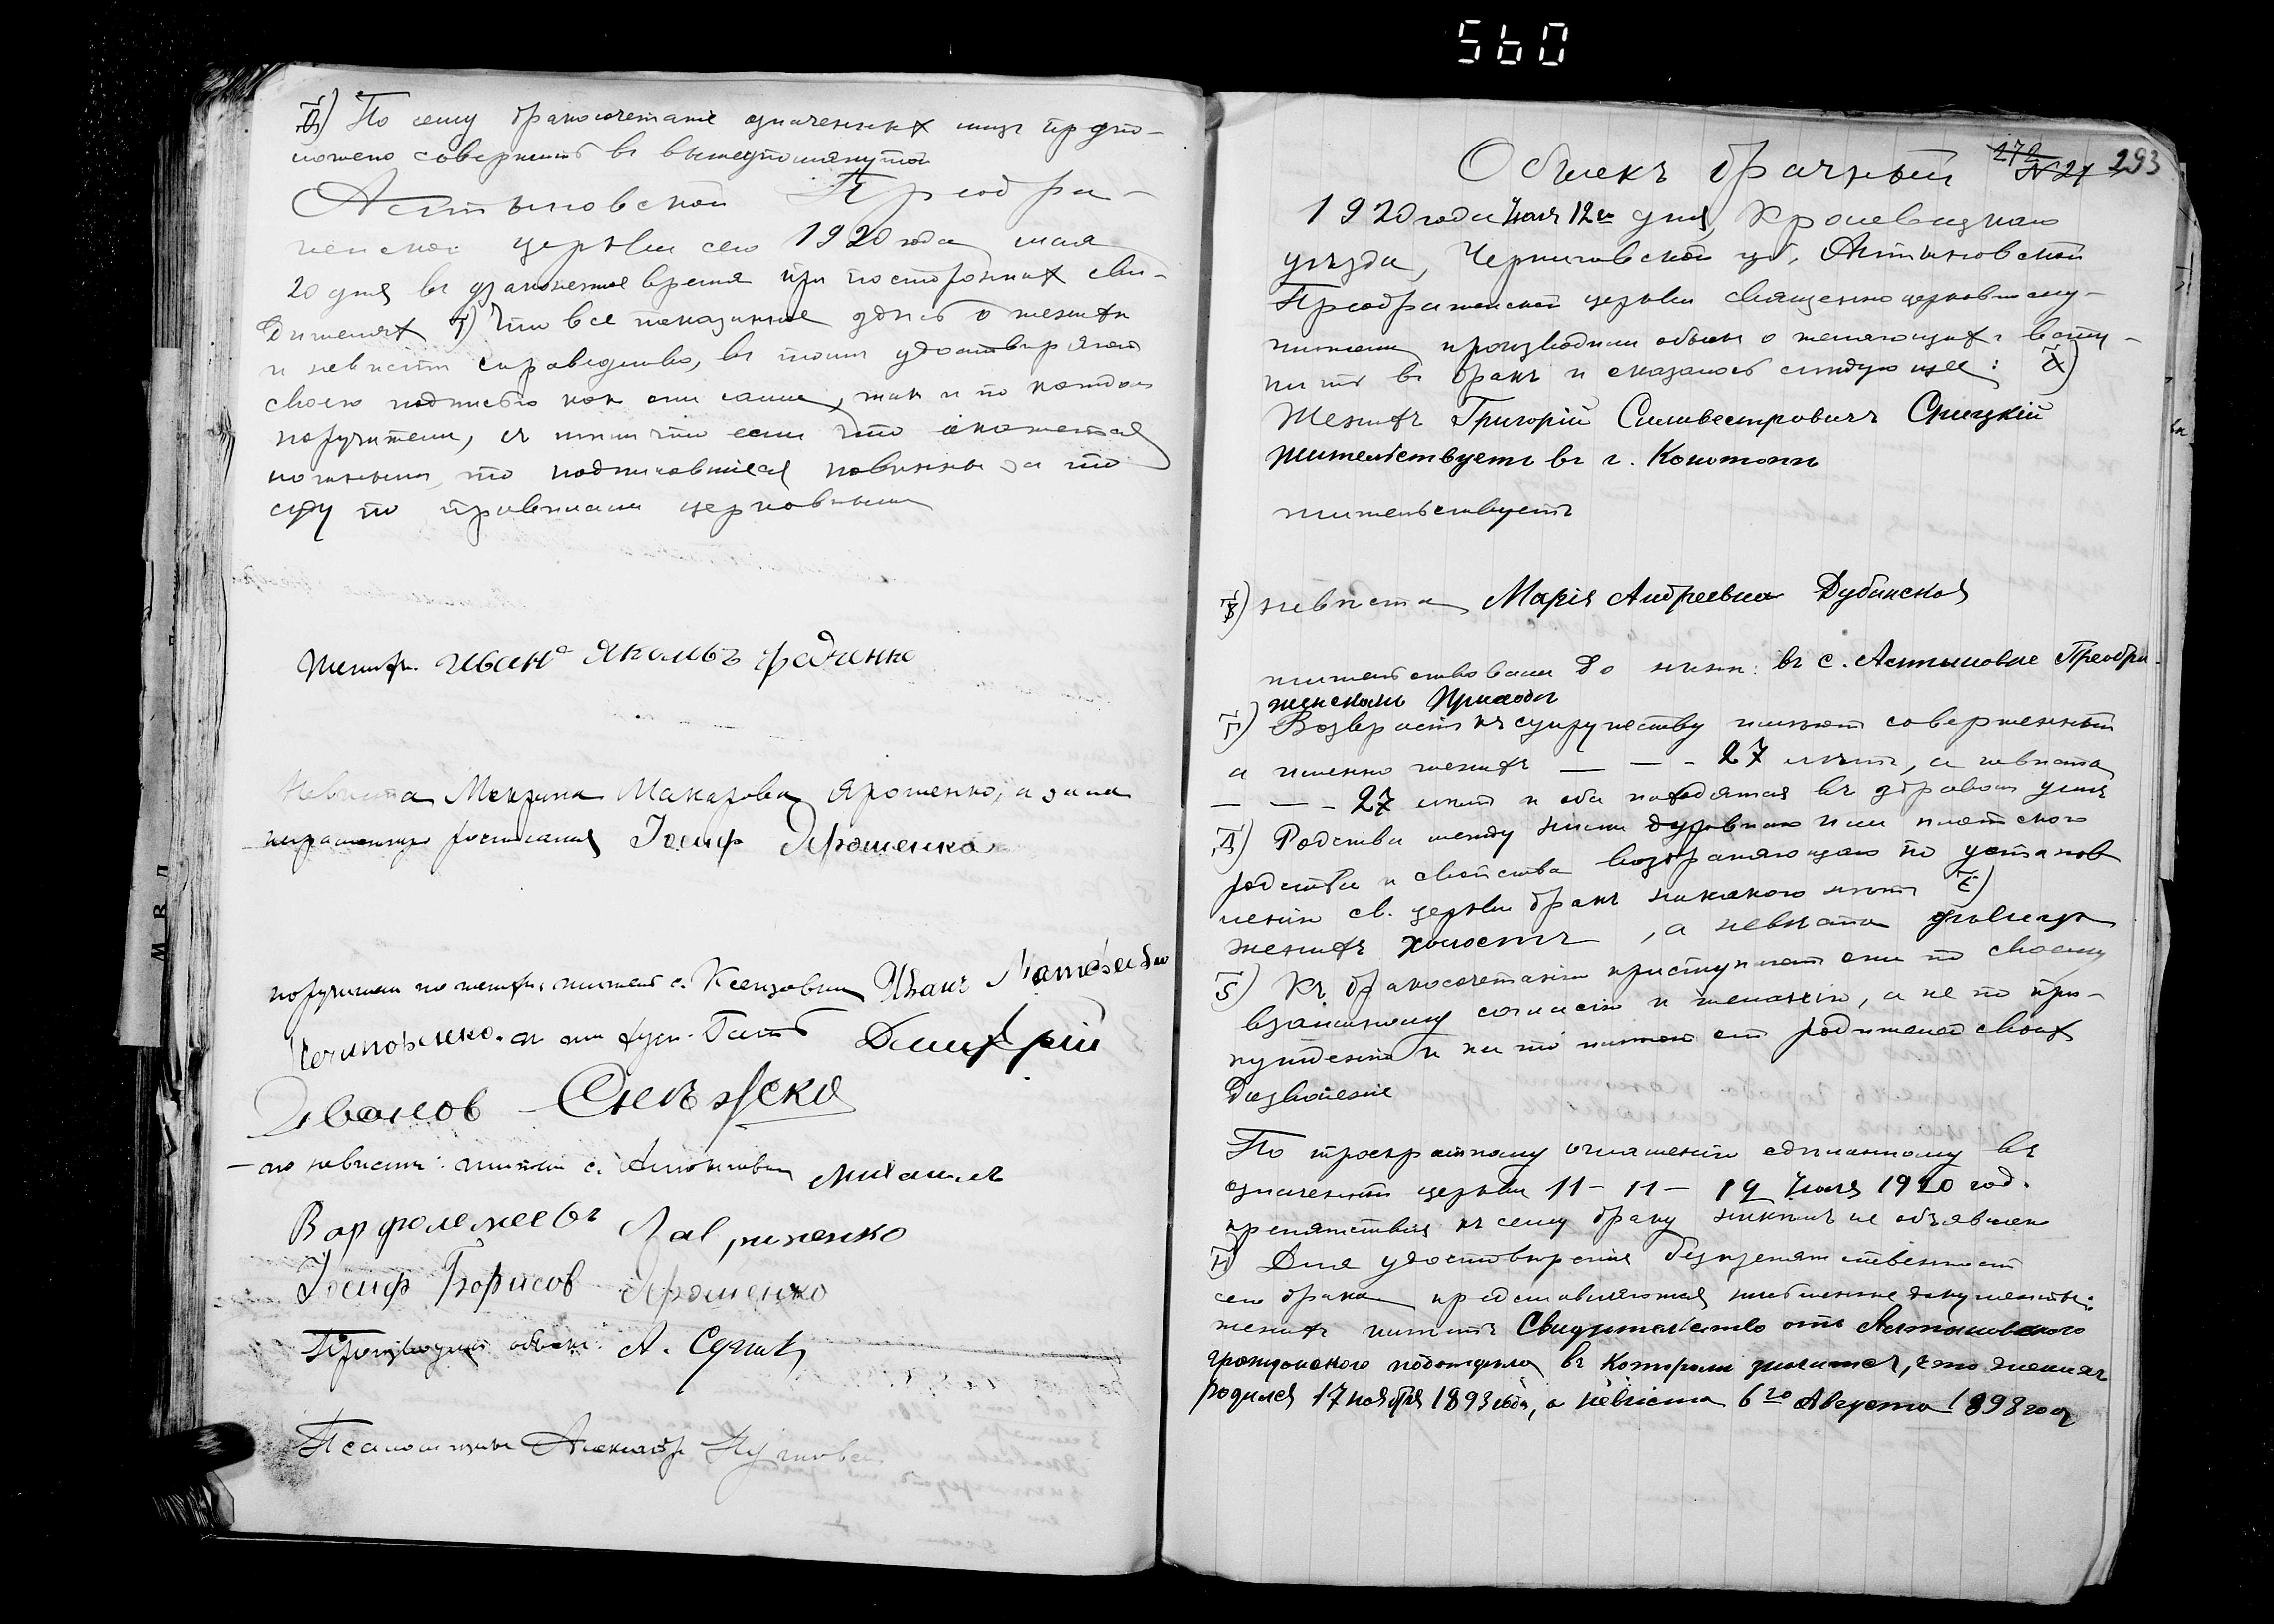 560
Ѳ) По сему бракосочетание означенных лиц предпо-
ложено совершить въ вышеупомянутой
Алтыновской Преобра-
женской церкви сего 1920 года мая
20 дня въ узаконенное время при посторонних сви-
дителях I) Что все показанное здесь о женихе
и невесте справедливо, въ том удостоверяют
своею подписью как они сами, так и по каждом
поручители, съ тем что если что окажется
ложным, то подписавшиеся повинны за то
суду по правилам церковным
Жених. Иванъ Яковлевъ
Невеста Макарова Ярошенко, а за нея
неграмотную росписался Іосиф Ярошенко
поручители по женихе: житель с. Иванъ
Дмитрій
Иванов
по невесте: житель с. Алтыновки Михаилъ
Варфоломеевъ Лавриненко
Іосиф Борисов Ярошенко
Производил обыск: А.
Псаломщик Александр
272 293
№ 21
Обыскъ брачный
1920 года Іюля 12го дня, Кролевецкаго
уезда, Черниговской губ. Алтыновской
Преображенской церкви священноцерковнослу-
жители производили обыск о желающихъ всту-
пить въ бракъ и оказалось следующее: а)
Женихъ Григорій Сильвестровичъ
жительствуетъ въ г. Конотопъ
жительствуетъ
в) невеста Марія Андреевна Дубинская
жительствовали до ныне: въ с. Алтыновке Преобра-
женскомъ Приходе
г) Возврастъ къ супружеству имеют совершенный
а именно женихъ — — - 27 летъ, а невеста
— — - 27 лет и оба находятся въ здравом уме
д) Родства между ними духовнаго или плотскаго
родства и свойства возбраняющаго по установ
лению св. церкви бракъ никакого нетъ е)
женихъ холостъ , а невеста девица
ѕ) Къ бракосочетанію приступают они по своему
взаимному согласію и желанію, а не по при-
нуждению и на то имеют от родителей своих
дозволение
По троекратному оглашению сделанному въ
означенной церкви 11 - 11 - 12 Іюля 1920 год.
препятствия къ сему браку никемъ не объявлено
н) Для удостоверения безпрепятственности
сего брака представляются письменные документы:
жених имеетъ Свидетельство отъ Алтыновского
гражданского подотдела въ котором значится, что женихъ
родился 17 ноября 1893 года, а невеста 6го Августа 1898 года